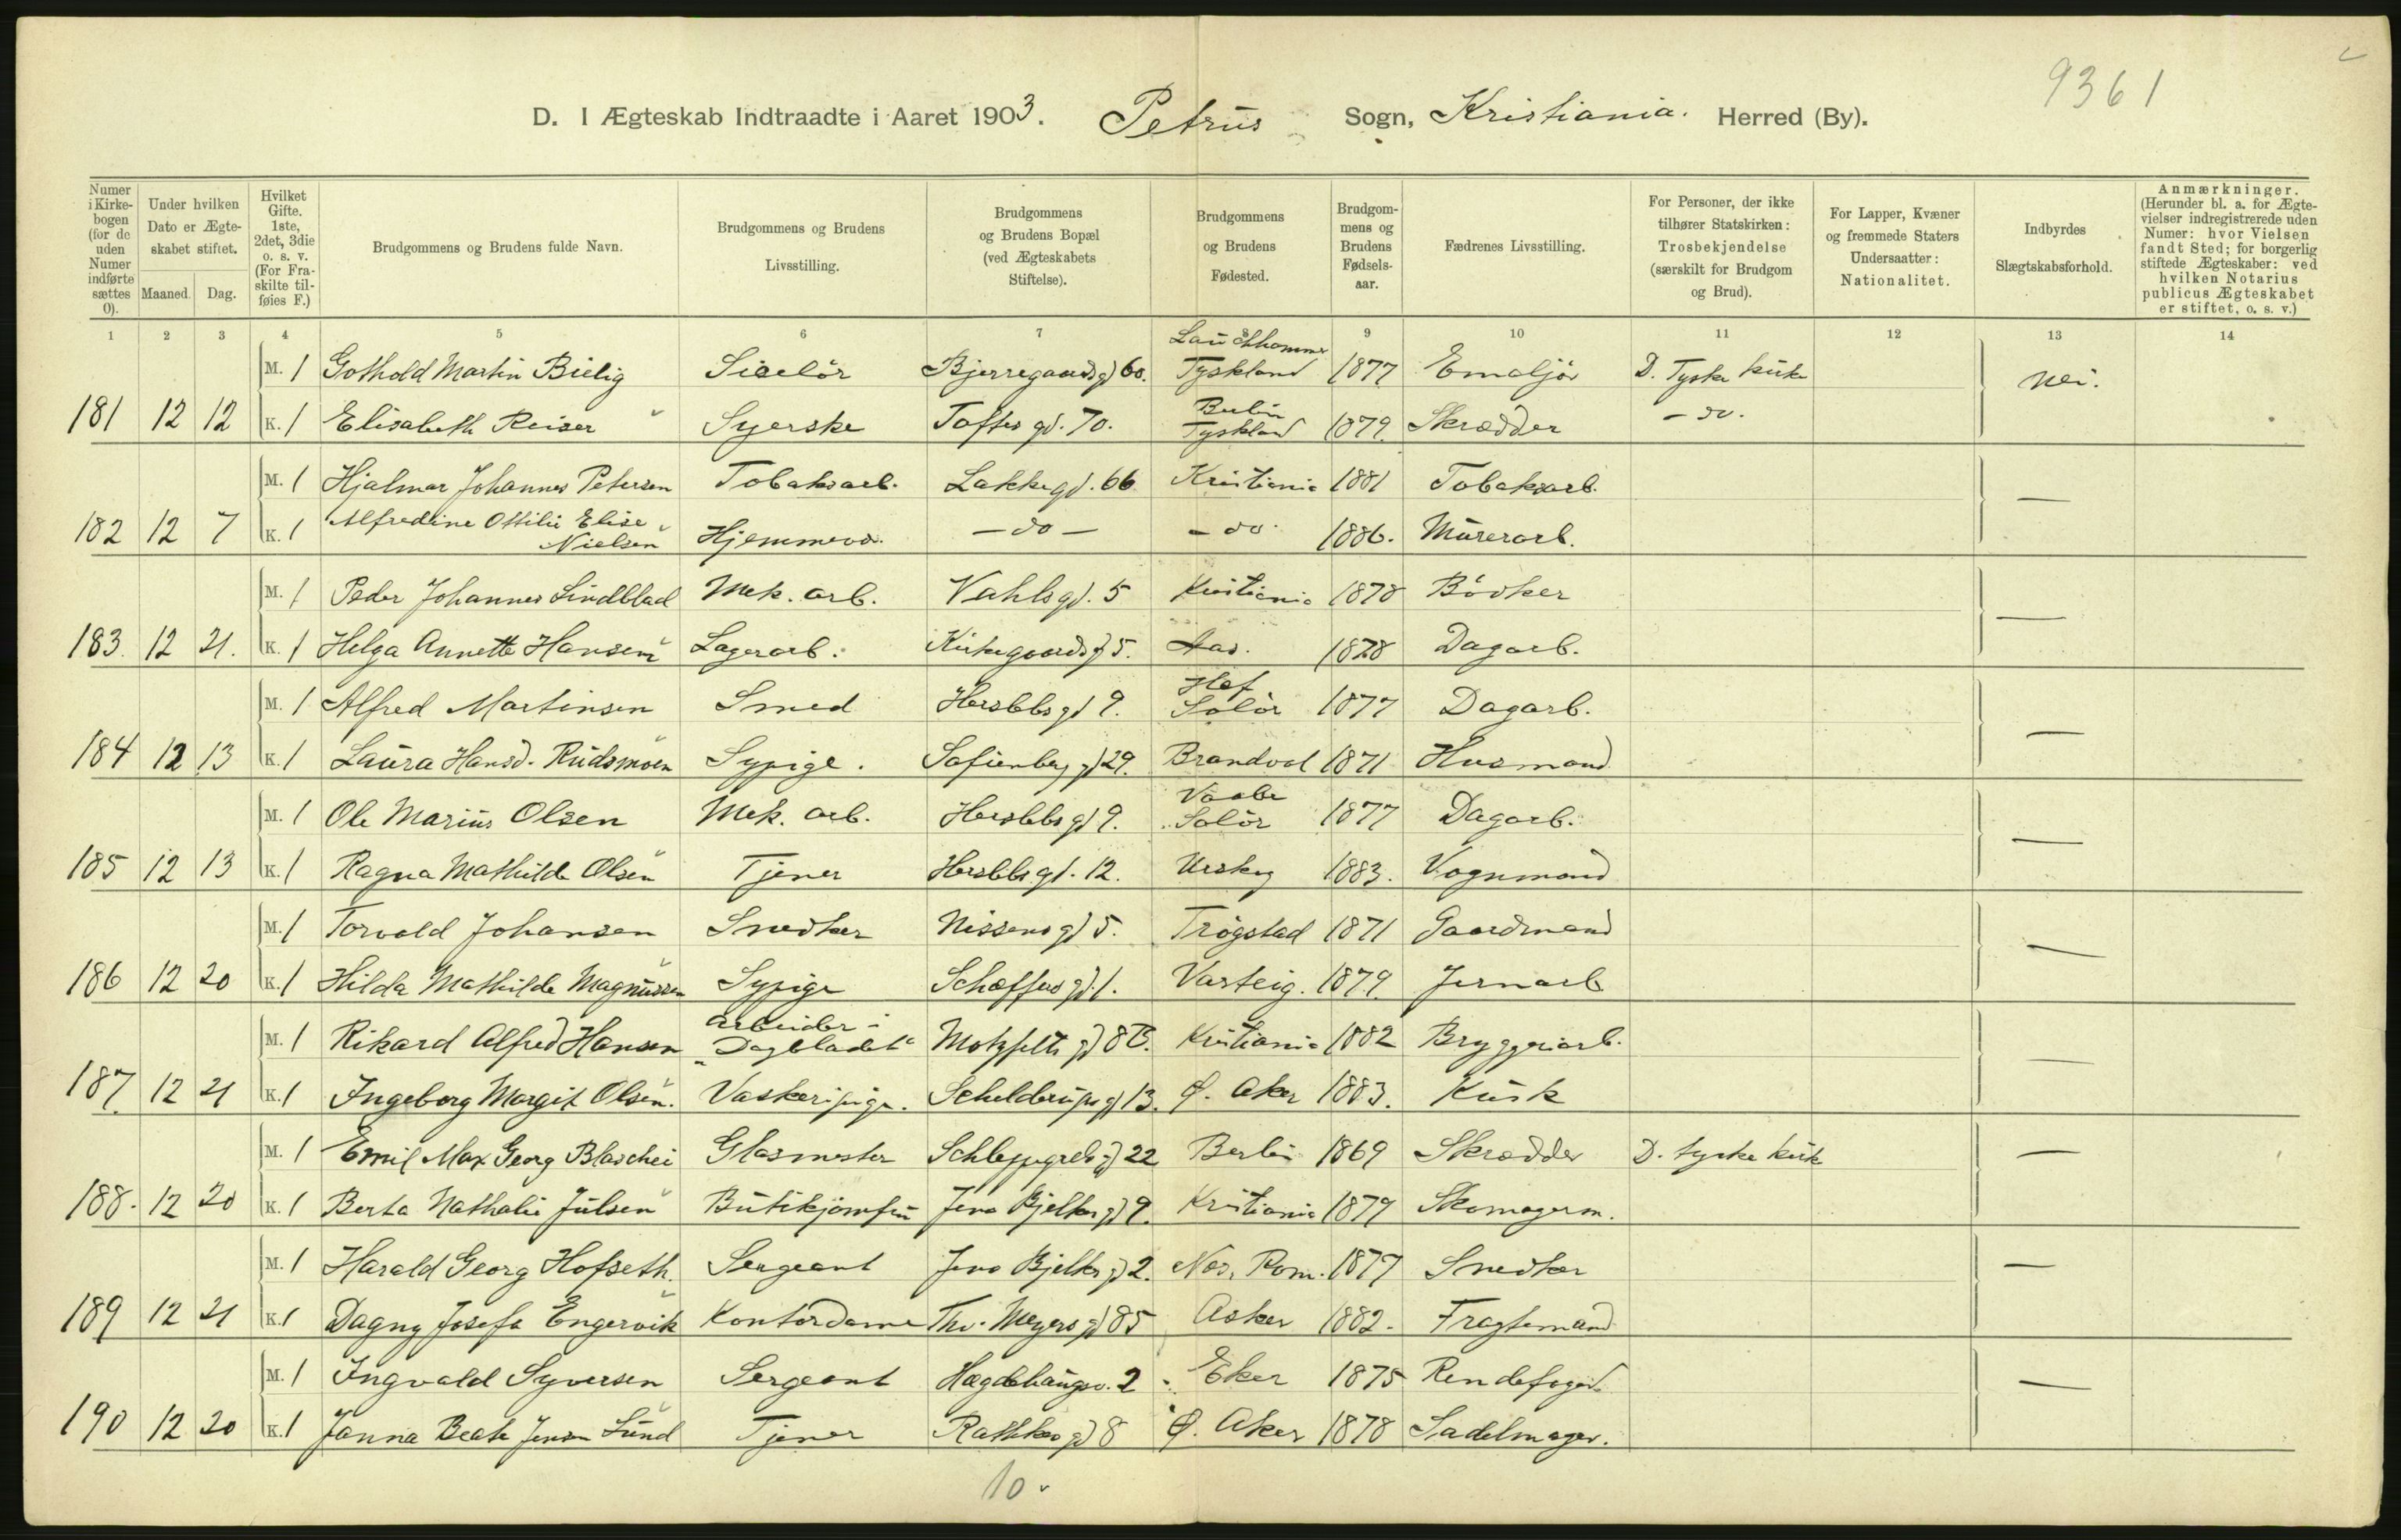 9361
D. I Ægteskab Indtraadte i Aaret 1903. Petrus Sogn, Kristiania. Herred (By).
Numer i Kirkebogen (for de uden Numer indførte sættes 0).
Under hvilken Dato er Ægteskabet stiftet.
Maaned. Dag.
Hvilket Gifte. 1ste, 2det, 3die o. s. v. (For Fraskilte tilføies F.)
Brudgommens og Brudens fulde Navn.
Brudgommens og Brudens Livsstilling.
Brudgommens og Brudens Bopæl (ved Ægteskabets Stiftelse).
Brudgommens og Brudens Fødested.
Brudgommens og Brudens Fødselsaar.
Fædrenes Livsstilling.
For Personer, der ikke tilhører Statskirken: Trosbekjendelse (særskilt for Brudgom og Brud).
For Lapper, Kvæner og fremmede Staters Undersaatter: Nationalitet.
Indbyrdes Slægtskabsforhold.
Anmærkninger. (Herunder bl. a. for Ægtevielser indregistrerede uden Numer: hvor Vielsen fandt Sted; for borgerlig stiftede Ægteskaber: ved hvilken Notarius publicus Ægteskabet er stiftet, o. s. v.)
1 2 3 4 5 6 7 8 9 10 11 12 13 14
M. 1 Gothold Martin Bielig Siselör Bjerregaardsgd 60. Lauchhammer Tyskland 1877 Emaljör D. Tyske kirke Nei.
181 12 12 K. 1 Elisabeth Reiser Syerske Toftes gd. 70. Berlin Tyskland 1879. Skrædder - do.
M. 1 Hjalmar Johannes Petersen Tobaksarb. Lakkegd. 66 Kristiania 1881 Tobaksarb. —
182 12 7 K. 1 Alfredine Ottilie Elise Nielsen Hjemmevær. - do - - do. 1886. Murerarb.
M. 1 Peder Johannes Lindblad Mek. arb. Vahlsgd. 5 Kristiania 1878 Bödker —
183. 12 21. K. 1 Helga Annette Hansen Lagerarb. Kirkegaardsgd 5. Aas. 1878 Dagarb.
M. 1 Alfred Martinsen Smed Herslebsgd 9. Hof Solör 1877 Dagarb. —
184 12 13 K. 1 Laura Hansd. Rudsmoen Sypige. Sofienberg gd 29. Brandval 1871 Husmand
M. 1 Ole Marius Olsen Mek. arb. Herslebsgd 9. Vaaler Solör 1877 Dagarb. —
185 12 13 K. 1 Ragna Mathilde Olsen Tjener Herslebsgd. 12. Urskog 1883. Vognmand
M. 1 Torvald Johansen Snedker Nissens gd 5. Trøgstad 1871 Gaardmand —
186 12 20 K. 1 Hilda Mathilde Magnussen Sypige Schæffers gd. 1. Varteig. 1879. Jernarb
M. 1 Rikard Alfred Hansen Arbeider i "Dagbladet" Motzfeldts gd 8B. Kristiania 1882 Bryggeriarb. —
187. 12 21 K. 1 Ingeborg Margit Olsen. Vaskeripige. Schelderups gd 13. Ø. Aker 1883. Kusk
M. 1 Emil Max Georg Blaschei Glasmester Schleppegrels gd 22 Berlin 1869 Skrædder D. tyske kirke —
188. 12 20 K. 1 Berta Nathalie Julsen Butikjomfru Jens Bjelkes gd 9. Kristiania 1879 Skomagerm.
M. 1 Harald Georg Hofseth. Sergeant Jens Bjelkes gd 2. Nes, Rom. 1877 Snedker —
189 12 21 K. 1 Dagny Josefa Engervik Kontordame Thv. Meyers gd 85 Asker 1882. Fragtemand
M. 1 Ingvald Syversen Sergeant Hægdehaugsv. 2 Eker 1875 Rendefoged —
190 12 20 K. 1 Janna Beate Jensen Lund Tjener Rathkes gd 8 Ø. Aker 1878 Sadelmager.
10.